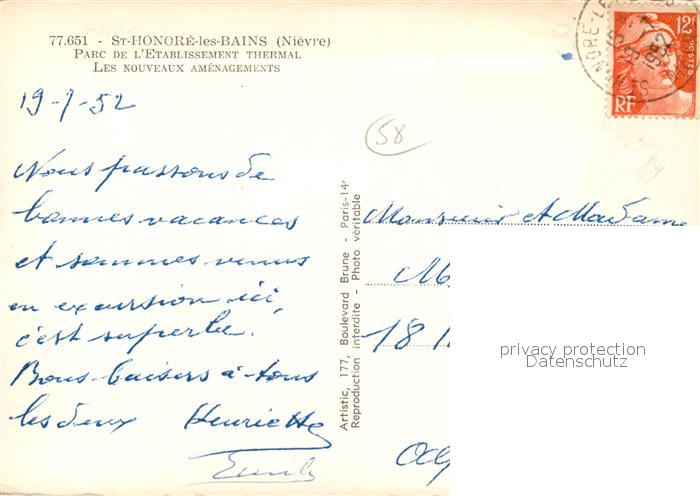 77.651 - St-HONORÉ-les-BAINS (Nièvre)
PARC DE L'ETABLISSEMENT THERMAL
LES NOUVEAUX AMÉNAGEMENTS
19-7-52
Nous passons de
bonnes vacances
et sommes venus
en excursion ici,
c'est superbe.
Bons baisers à tous
les deux Henriette
Artistic, 177, Boulevard Brune - Paris-14e
Reproduction interdite - Photo véritable
58
12F
RF
Monsieur et Madame
18
privacy protection
Datenschutz